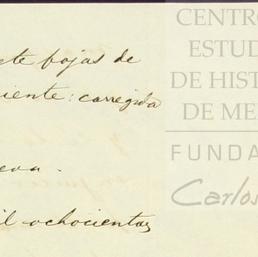 ete fojas de
iente: corregida
eva.
il ochocientas
CENTRO
ESTUD
DE HIST
DE ME
FUNDA
Carlos